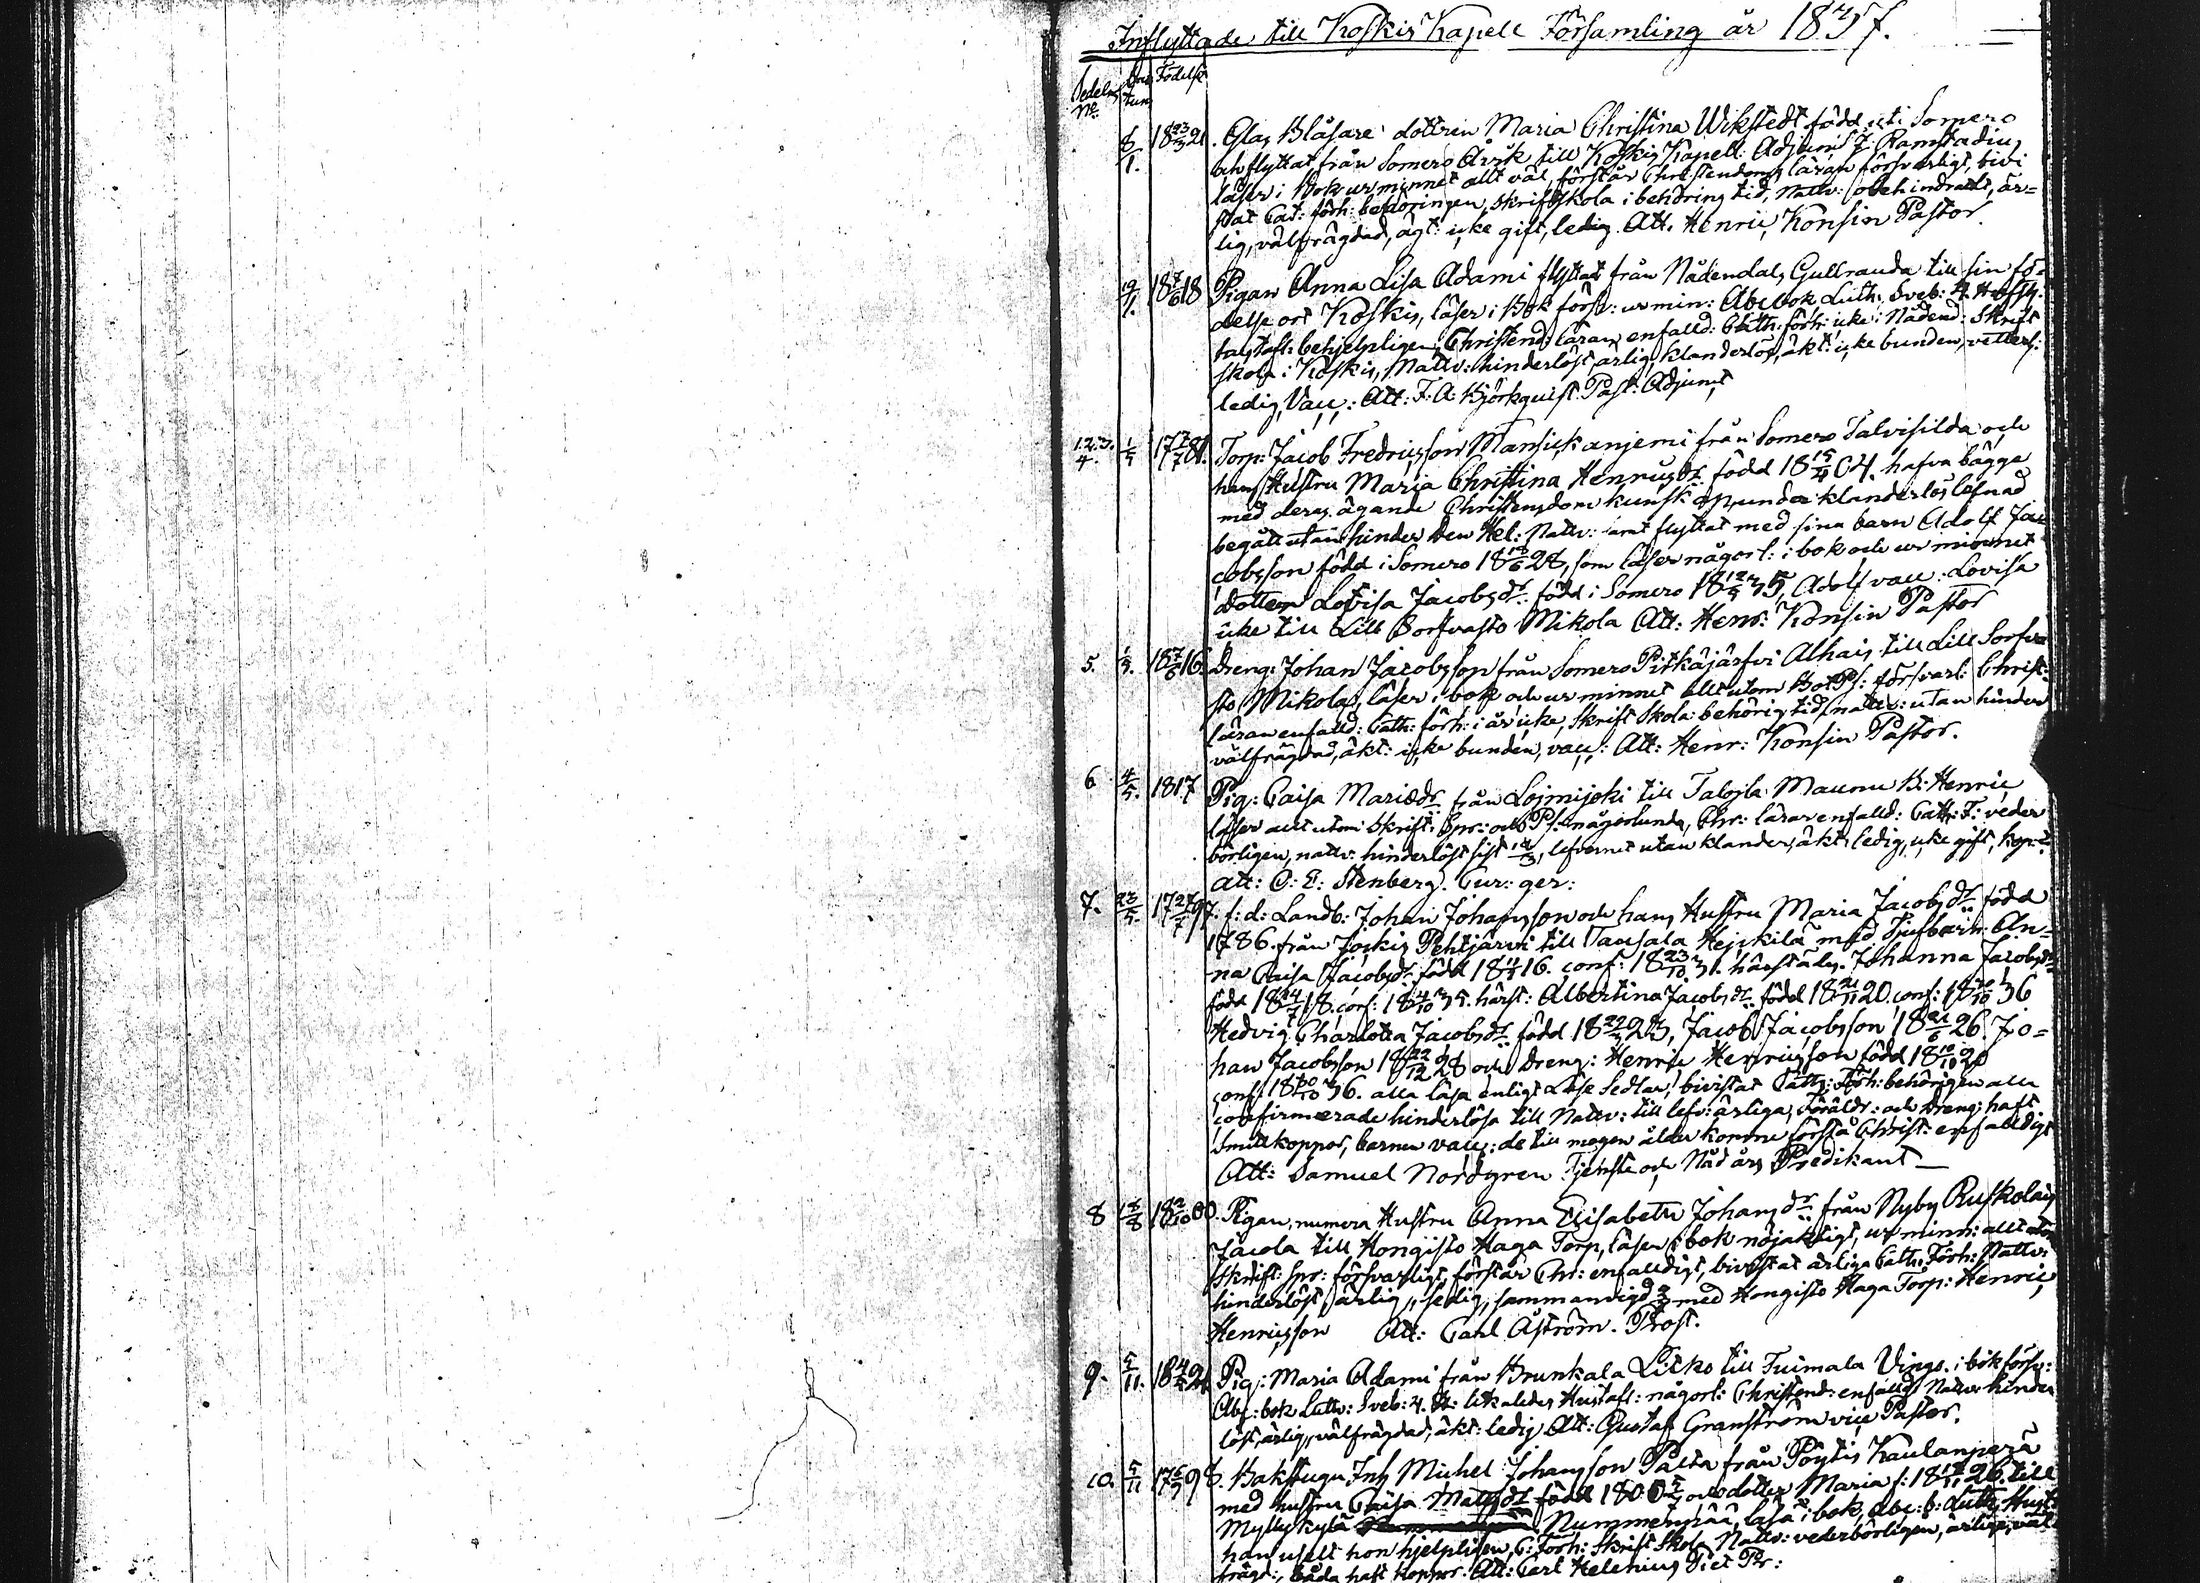 Inflyttade till Koskis Kapell Församling år 1837.
Sedelns No. Datum Födelse
8/1. 18 23/3 21. Glas Blåsare dottren Maria Christina Wikstedt född uti Somero
och flyttat från Somero Åvik till Koskis Kapell: Adjunct J: Ramstadius
läser i Bok ur minnet allt väl, förstår Christendoms läran försvarligt, bivi
stat Cat: förh: behöringen, skriftskola i behöring tid, Nattv: obehindradt, är=
lig, välfrägdad, ägt: icke gift, ledig. Att. Henric Konsin Pastor.
19/1. 18 7/6 18 Pigan Anna Lisa Adami flyttat från Nådendals Gullranda till sin fö=
delse ort Koskis, läser i Bok försv: ur min: Abc bok Luth: Sveb: H. Hufsk:
taflt: behjelpligen, Christend: läran enfalld: Cath: förh: icke i Nådend: Skrift
skola i Koskis, Nattv: hinderlöst, ärlig, klanderlös, äkt: icke bunden, vitterl:
ledig, Vacc: Att: F. A. Björkquist. Past: Adjunct
1.2.3. 4. 1/5 Torp: Jacob Fredricsson Mansickaniemi från Somero Talvisilda och
hans Hustru Maria Christina Henricsdr. född 18 15/4 04. hafva bägge
med deras ägande Christensdoms kunskap, under klanderlös lefnad
begått utan hinder Den Hel: Nattv: samt flyttat med sina barn Adolf Ja=
cobsson född i Somero 18 18/6 28, som läser någorl: i bok och ur minnet
dottern Lovisa Jacobsdr: född i Somero 18 12/5 35, Adolf vacc: Lovisa
icke till Lill Sorfvasto Mikola Att: Henr: Konsin Pastor
5. 1/5. 18 7/6 16. Dreng: Johan Jacobsson från Somero Pitkäjärfvi Alhais till Lill Sorfva
sto Mikola, läser i bok och ur minnet allt utom Bot Ps: försvarl: Christ:
läran enfalld: Cath: förh: i år icke, skrift Skola behörig tid, nattv: utan hinder
välfrägdad, äkt: icke bunden, vacc: Att: Henr: Konsin Pastor.
6 4/5. 1817 Pig: Caisa Mariædr från Lojmijoki till Talojla Maunu B: Henric
läser allt utom Skrift: Spr: och Ps. någorlunda, Chr: läran enfalld: Cath: F: veder
börligen, nattv: hinderlöst sist, lefvernet utan klander, äkt: ledig, icke gift, kop:
Att: C: E: Stenberg. Cur: ger:
7. 23/5. 17 27/7 97. f: d: Landb: Johan Johansson och hans Hustru Maria Jacobsdr född
1786. från Jockis Pehtjärvi till Tausala Hejckilä med Stjufbarn: An=
na Caisa Jacobsdr född 1816. conf: 18 23/10 31. härstädes. Johanna Jacobsdr
född 18 14/7 18. conf: 18 4/10 35. härst: Albertina Jacobsdr: född 18 21/11 20. conf: 18 30/10 36
Hedvig Charlotta Jacobsdr född 18 22/3 23, Jacob Jacobsson 18 21/6 26. Jo=
han Jacobsson 18 22/12 28 och Dreng: Henric Henricsson född 18 10/10 20
conf: 18 30/10 36. alla läsa enligt Läse Sedlar, bivistat Cath: Förh: behörigen alla
confirmerade hinderlösa till Nattv: till lefv: ärliga, Föräldr: och Dreng: haft
Smittkoppor, barnen vacc: de till mogen ålder komne förstå Christ: enfalldigt
Att: Samuel Nordgren Tjenste och Nåd års Predikant
8 18 2/10 00. Pigan, numera Hustru Anna Elisabeth Johansdr: från Nyby Ruskolais
Jacola till Hongisto Haga Torp, läser i bok nöjaktigt, ur minn: allt utom
Skrift: Spr: försvarligt, förstår Chr: enfalldigt, bivistat årliga Cath: Förh: Nattv:
hinderlöst, ärlig, sedig, sammanvigd med Hongisto Haga Torp: Henric
Henricsson Att: Carl Åström. Prost.
9. 5/11. Pig: Maria Adami från Brunkala Litko till Tuimala Vings. i bok försv:
Abc: bok Luth: Sveb: H. H: likaledes Hustafl: någorl: Christend: enfalld: Nattv: hinder
löst, ärlig, välfrägdad, äkt: ledig Att: Gustaf Granström vice Pastor.
10. 5/11 Bakstugu Inh Michel Johansson Palta från Pöytis Kaulanperä
med hustru Caisa Mattsdr född 1800 och dotter Maria f: 26. till
Myllykylä Nummenpää, läsa i bok, Abc: b: Luth: Hust:
han uselt hon hjelpligen, C: Förh: Skrift Skola Nattv: vederbörligen, ärliga, väl
frägd:, båda haft koppor: Att: Carl Helenius Vict Pr: